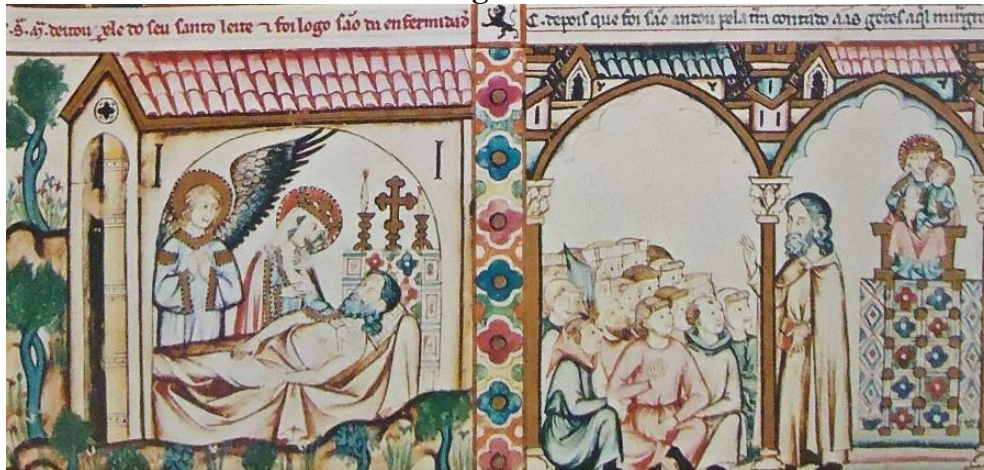 S. M. deitou sele do seu santo leite ⁊ foi logo são da enfermidad
C. depois que foi são andou pela tr̃a contãdo aas gẽtes aq̃l miragre